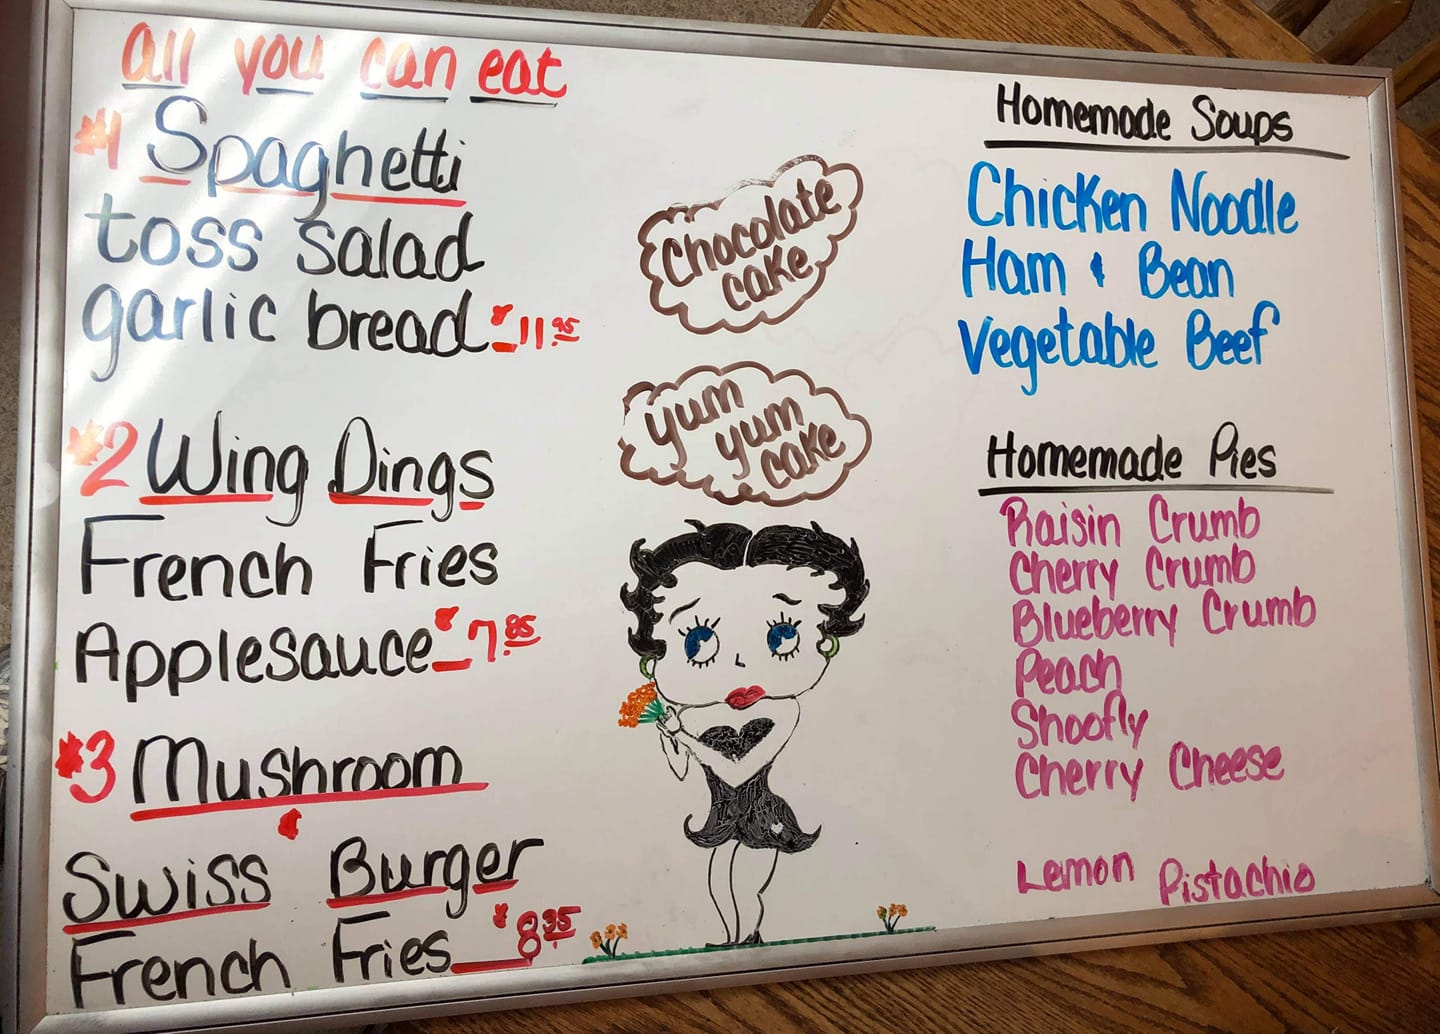 all you can eat
#1 Spaghetti
toss salad
garlic bread $11.95
#2 Wing Dings
French Fries
Applesauce $7.85
#3 Mushroom
Swiss Burger
French Fries $8.35
Chocolate
cake
yum
yum
cake
Homemade Soups
Chicken Noodle
Ham & Bean
Vegetable Beef
Homemade Pies
Raisin Crumb
Cherry Crumb
Blueberry Crumb
Peach
Shoofly
Cherry Cheese
Lemon Pistachio